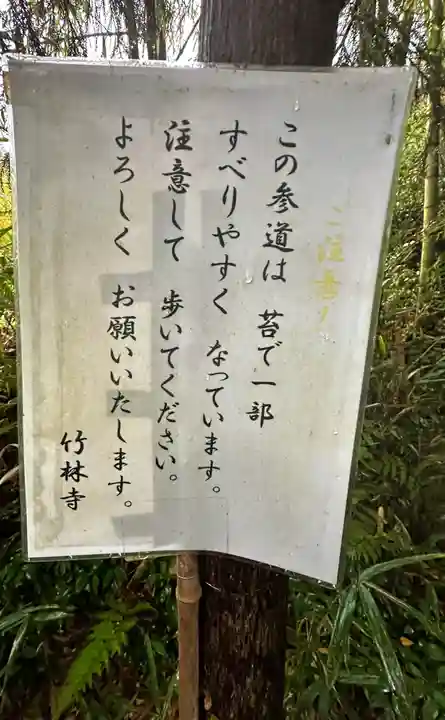 ご注意!
この参道は 苔で一部
すべりやすく なっています。
注意して 歩いてください。
よろしく お願いいたします。
竹林寺